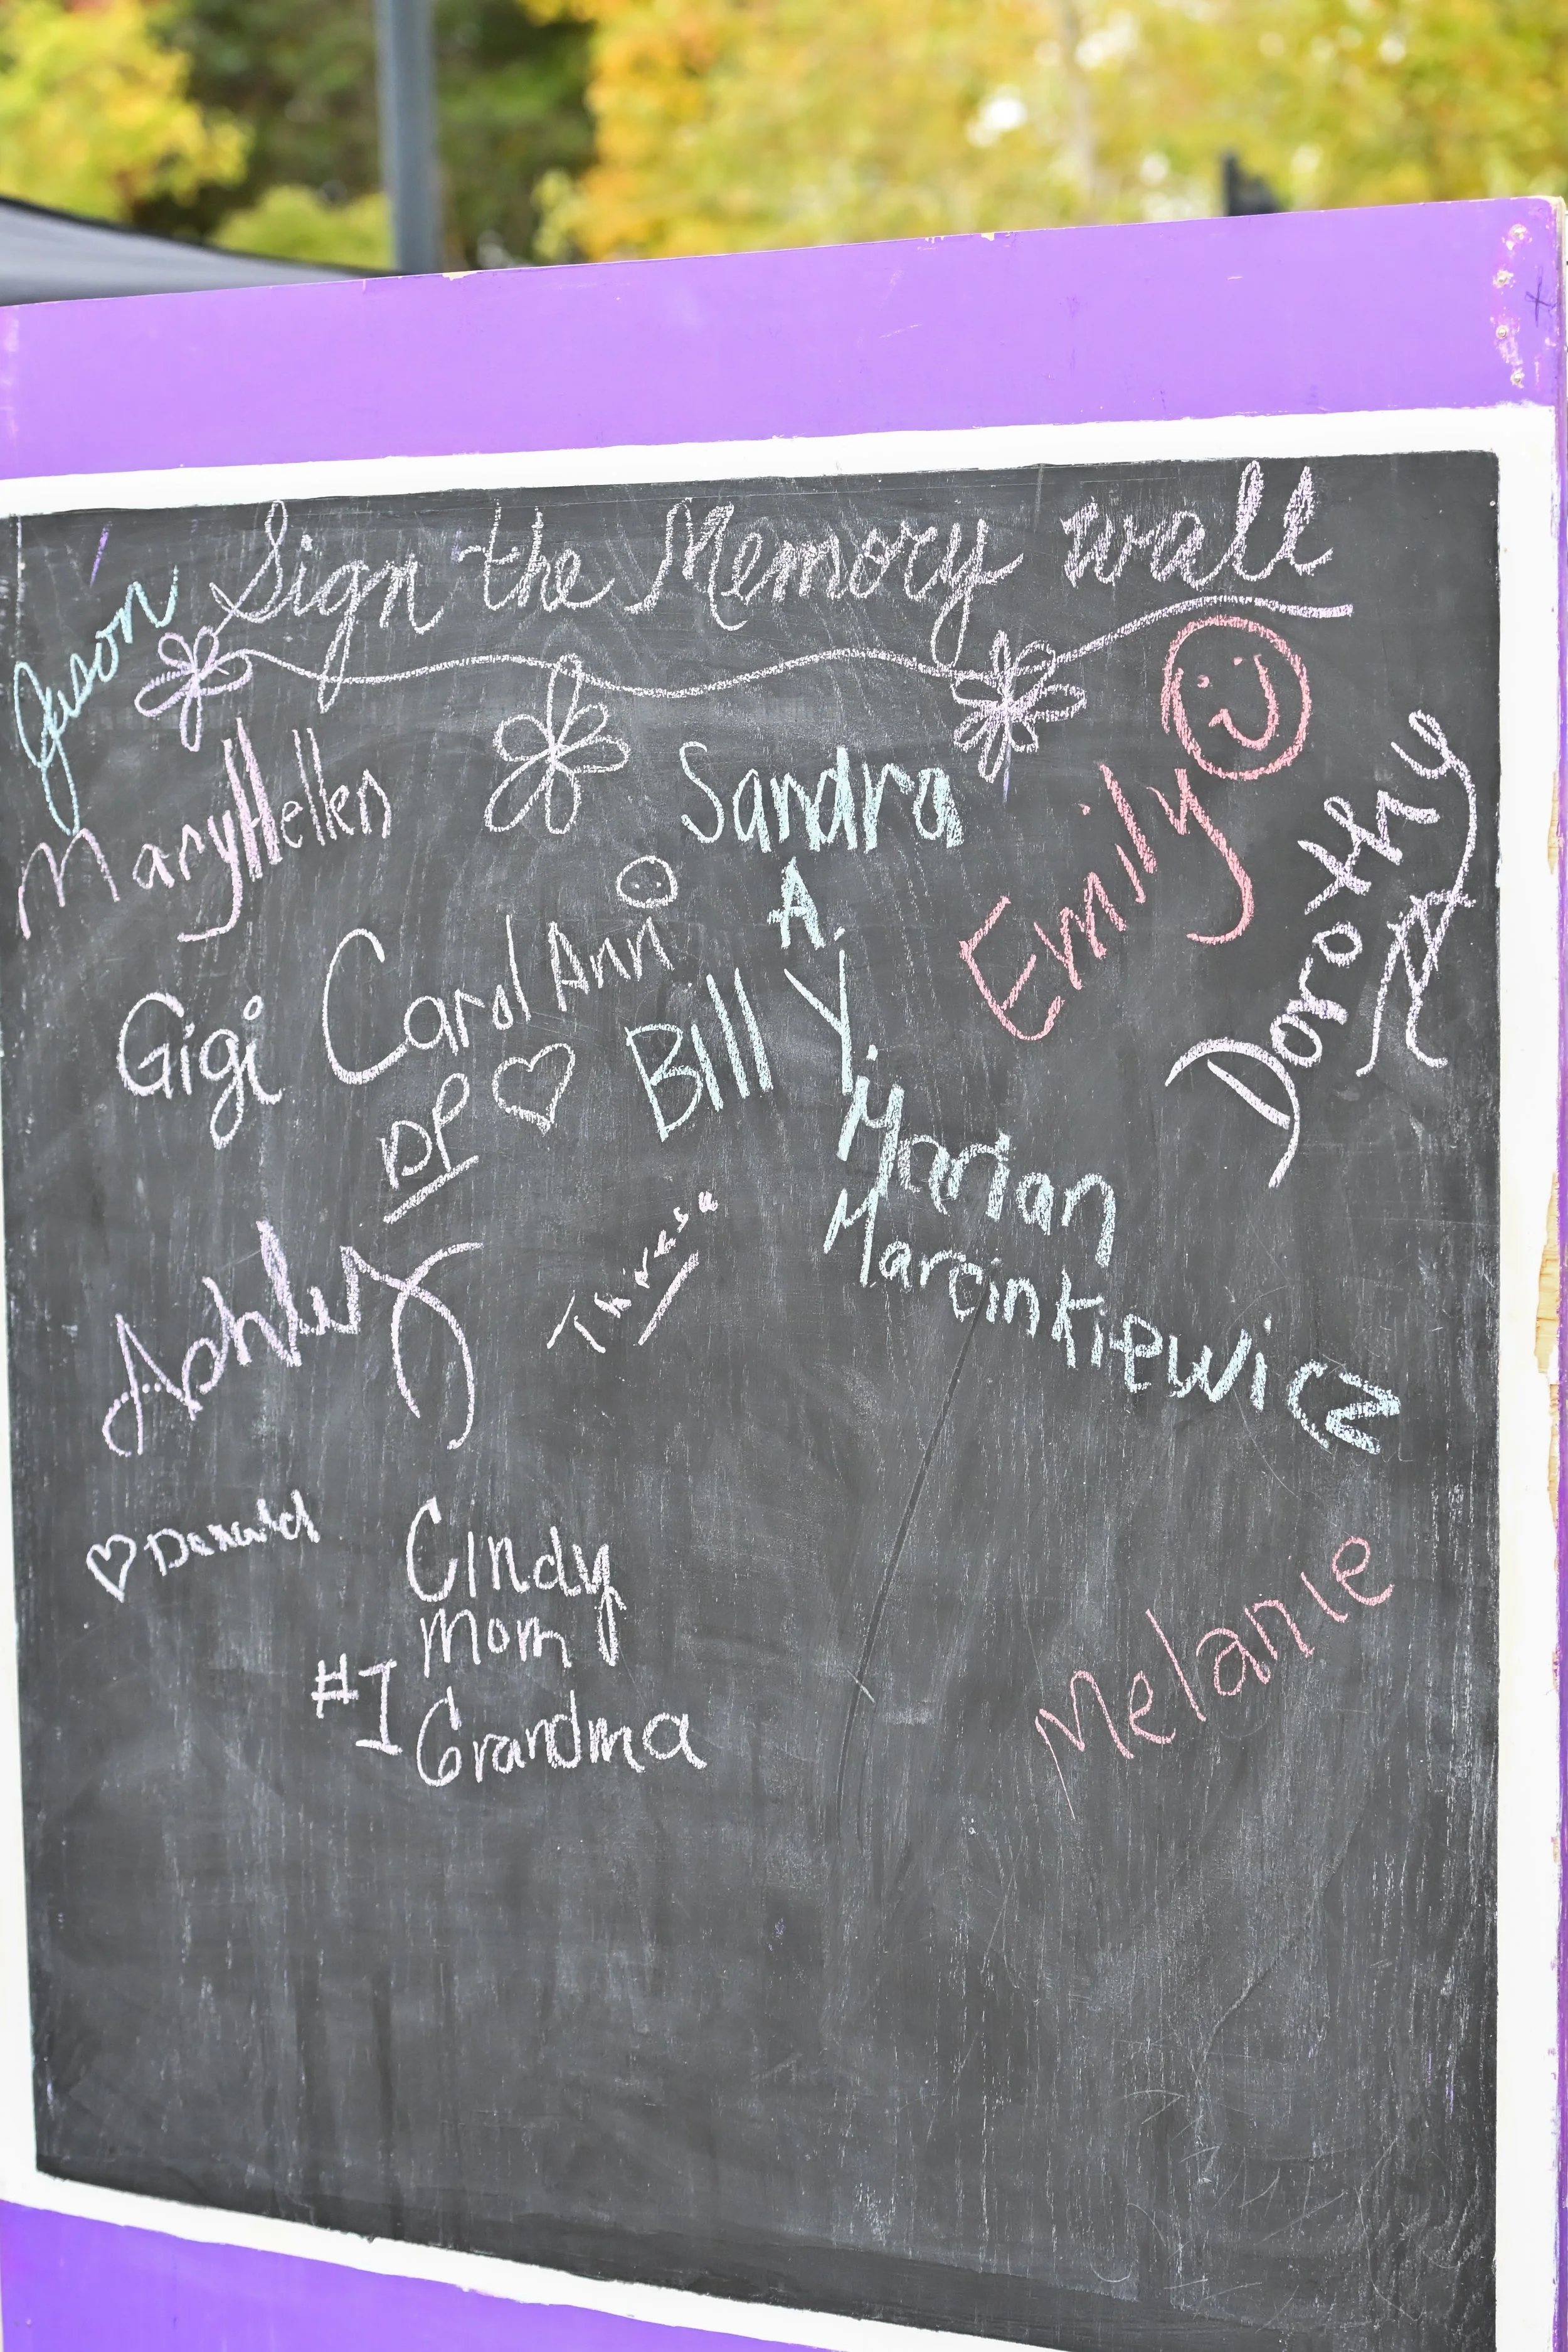 Sign the Memory wall
Jason
MaryHellen
Sandra
A.
Emily
Dorothy
Gigi
Carol Ann
DP
Bill Y.
Marian
Marcinkiewicz
Ashley
Thresa
Donald
Cindy
Mom
#1 Grandma
Melanie